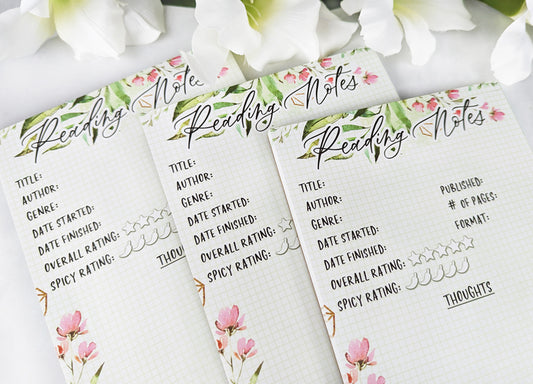 Reading Notes
TITLE:
AUTHOR:
GENRE:
DATE STARTED:
DATE FINISHED:
OVERALL RATING:
SPICY RATING:
THOUGHTS
Reading Notes
TITLE:
AUTHOR:
GENRE:
DATE STARTED:
DATE FINISHED:
OVERALL RATING:
SPICY RATING:
THOUGHTS
Reading Notes
TITLE:
AUTHOR:
GENRE:
DATE STARTED:
DATE FINISHED:
OVERALL RATING:
SPICY RATING:
PUBLISHED:
# OF PAGES:
FORMAT:
THOUGHTS